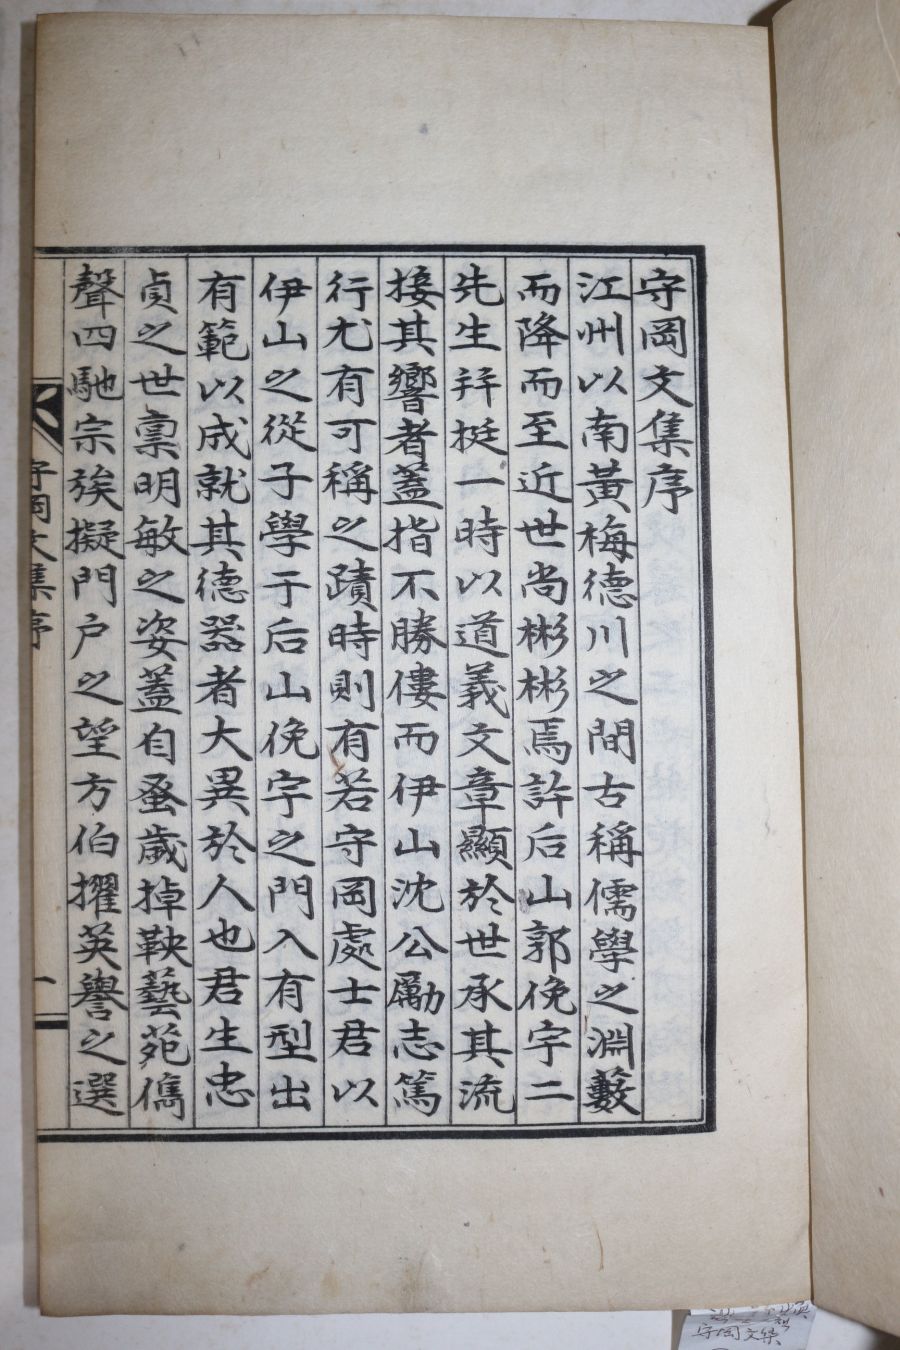 守岡文集序
江州以南黃梅德川之間古稱儒學之淵藪
而降而至近世尚彬彬焉許后山郭俛宇二
先生并挺一時以道義文章顯於世承其流
接其響者蓋指不勝僂而伊山沈公勵志篤
行尤有可稱之蹟時則有若守岡處士君以
伊山之從子學于后山俛宇之門入有型出
有範以成就其德器者大異於人也君生忠
貞之世稟明敏之姿蓋自蚤歲掉鞅藝苑儁
聲四馳宗族擬門户之望方伯擢英譽之選
守岡文集序
一
守岡文集